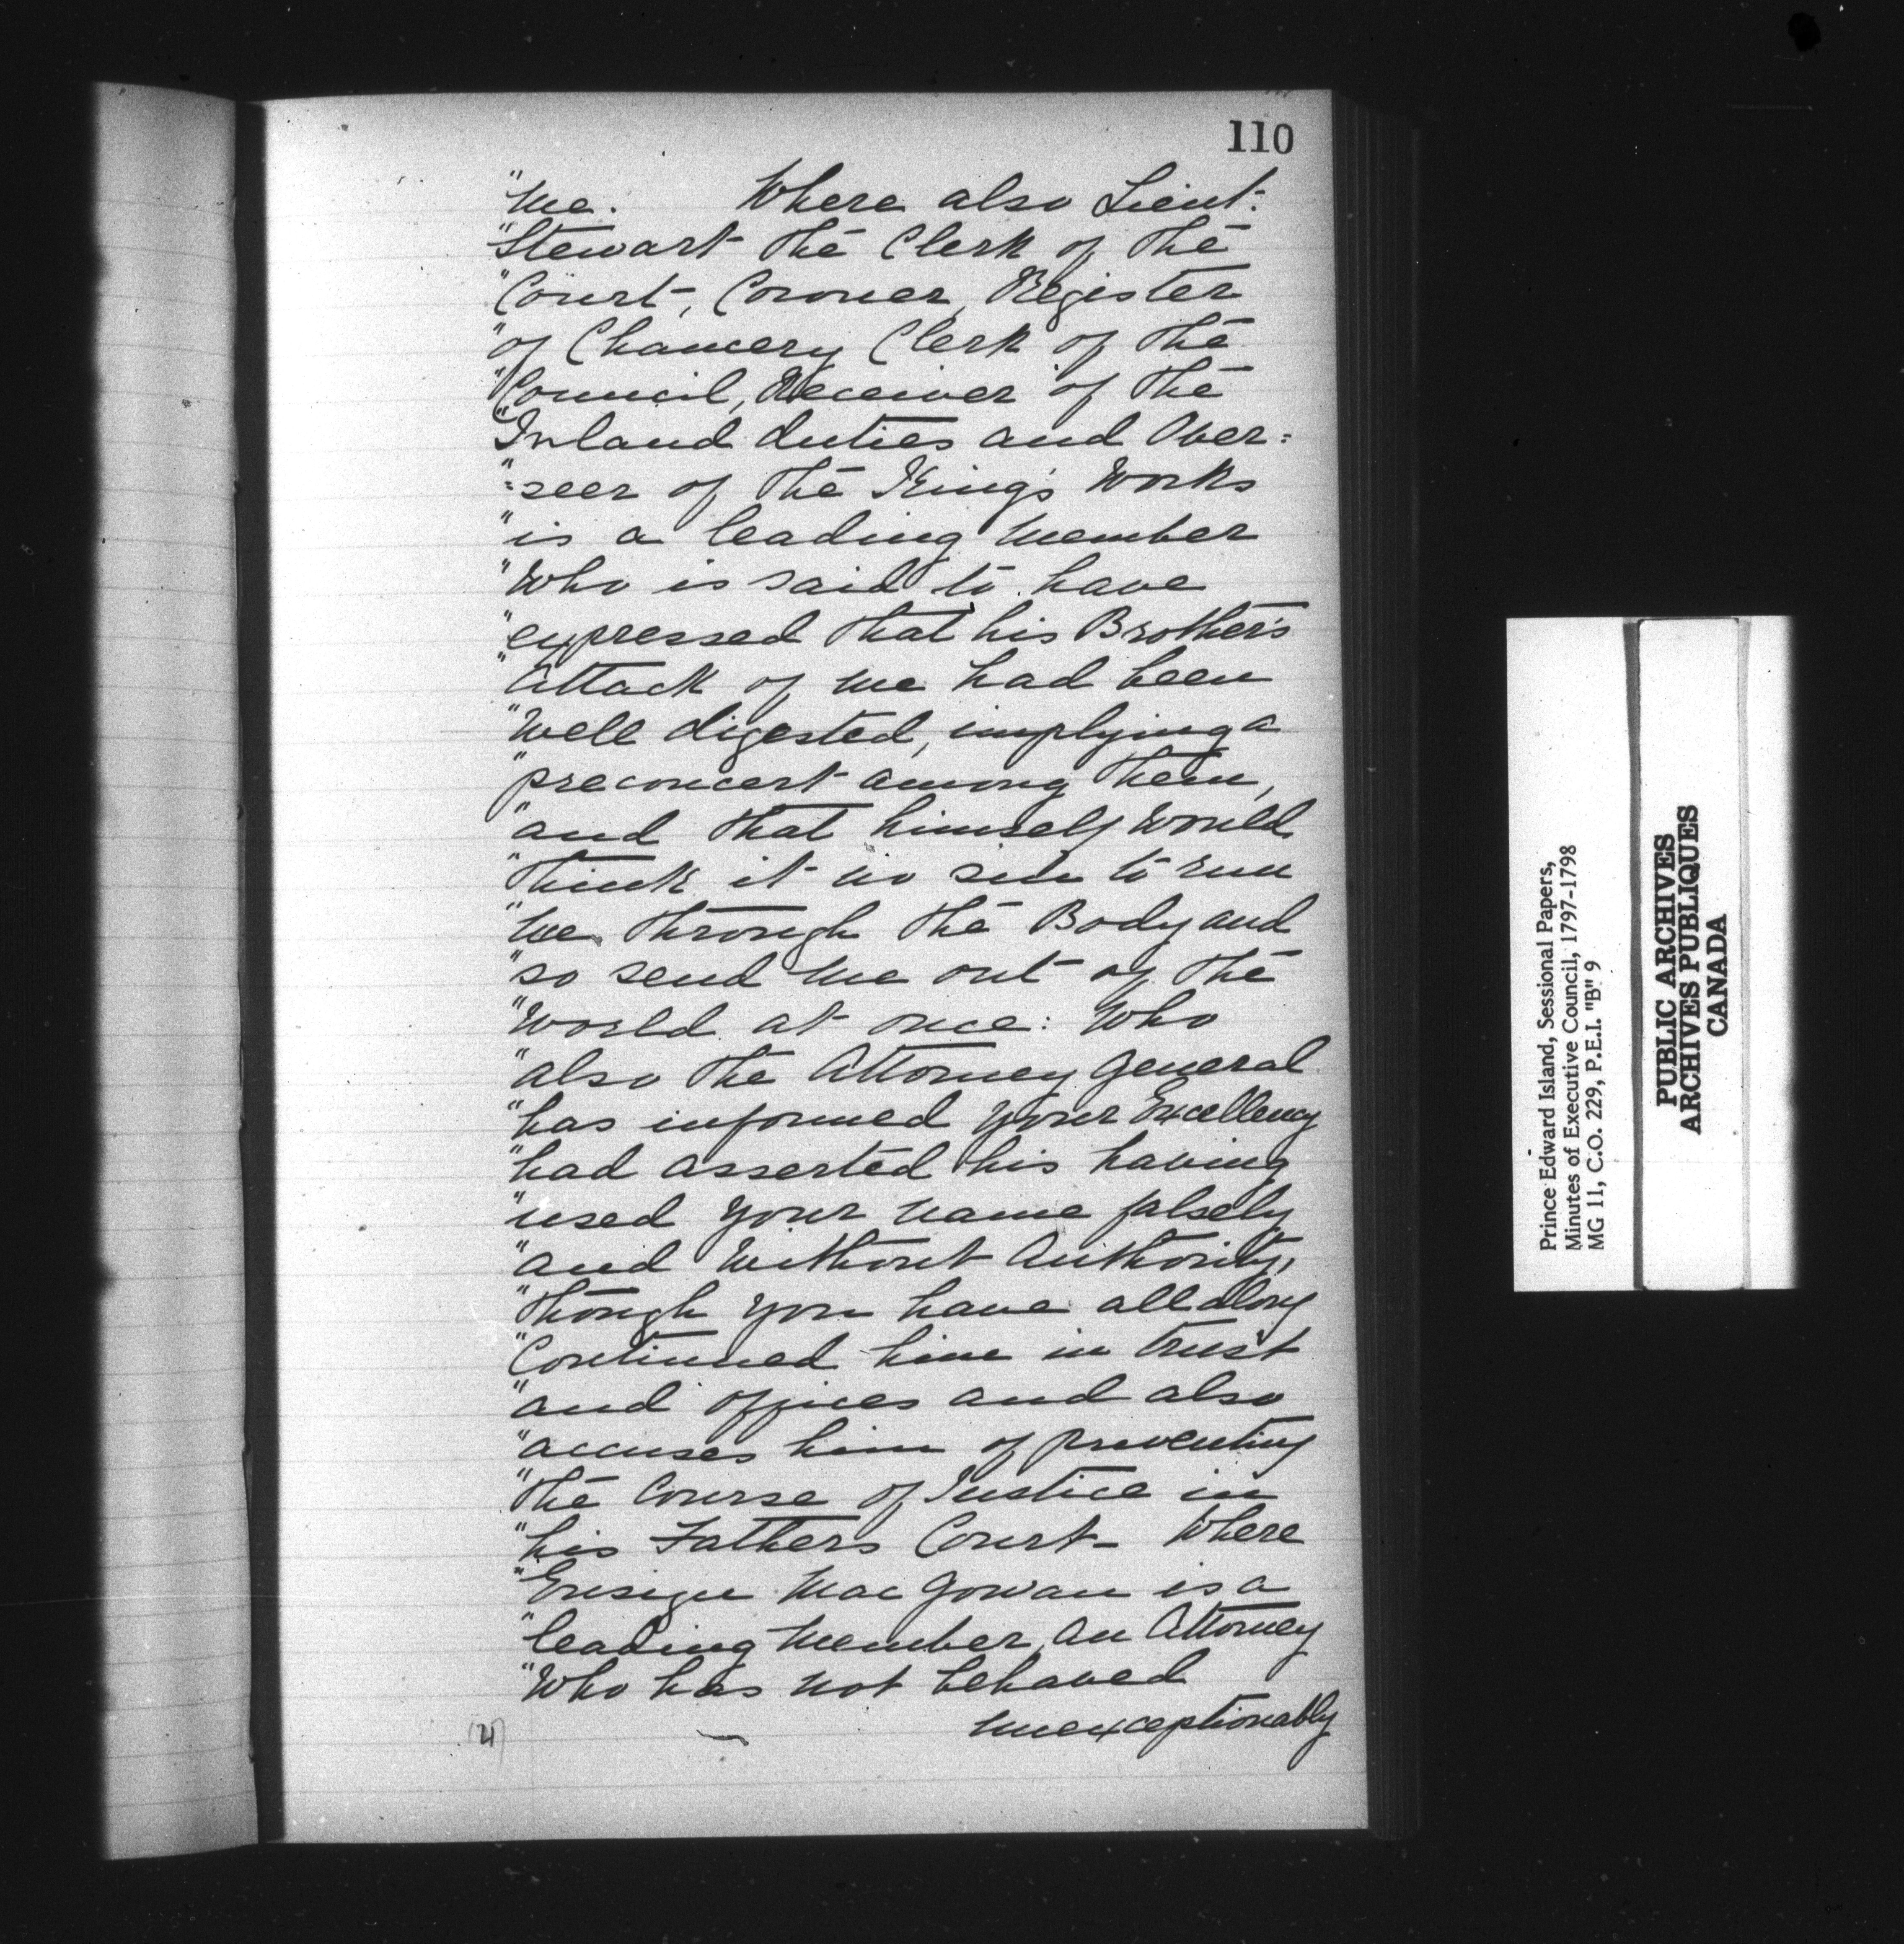 110
"me. Where also Lieut:
"Stewart the Clerk of the
"Court, Coroner, Register
"of Chancery Clerk of the
"Council, Receiver of the
"Inland duties and Over=
"=seer of the King's Works
"is a leading Member
"Who is said to have
"expressed that his Brother's
"Attack of me had been
"Well digested, implying a
"preconcert among them,
"and that himself would
"think it no sin to run
"me through the Body and
"so send me out of the
"World at once: Who
"also the Attorney General
"has informed your Excellency
"had asserted his having
"used your name falsely
"and Without Authority,
"though you have all along
"Continued him in trust
"and offices and also
"accuses him of preventing
"the Course of Justice in
"his Fathers Court- Where
"Ensign Mac Gowan is a
"leading Member, an Attorney
"Who has not behaved
unexceptionably
(21)
Prince Edward Island, Sessional Papers,
Minutes of Executive Council, 1797-1798
MG 11, C.O. 229, P.E.I. "B" 9
PUBLIC ARCHIVES
ARCHIVES PUBLIQUES
CANADA